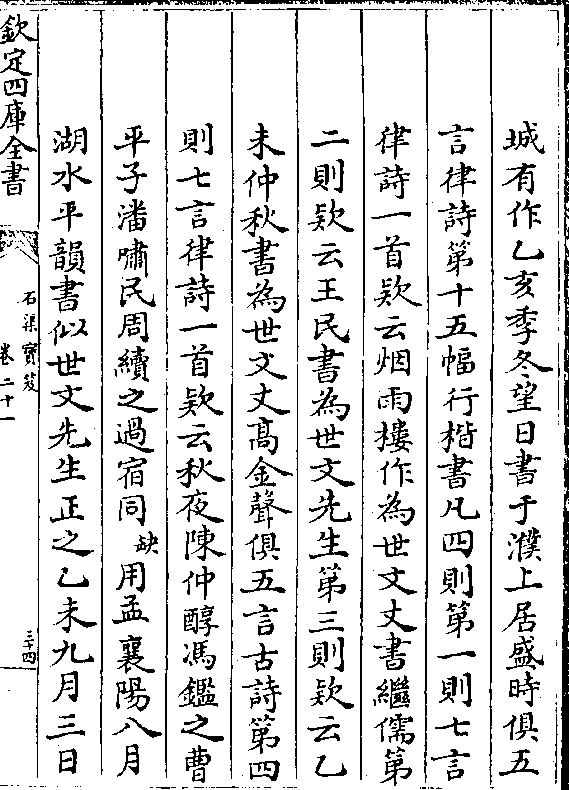 城有作乙亥季冬望日書于濮上居盛時俱五
言律詩第十五幅行楷書凡四則第一則七言
律詩一首款云烟雨樓作為世文丈書繼儒第
二則款云王民書為世文先生第三則款云乙
未仲秋書為世文丈高金聲俱五言古詩第四
則七言律詩一首款云秋夜陳仲醇馮鑑之曹
平子潘嘯民周續之過宿同缺用孟襄陽八月
湖水平韻書似世文先生正之乙未九月三日
欽定四庫全書
石渠寶笈
卷二十一
三十四